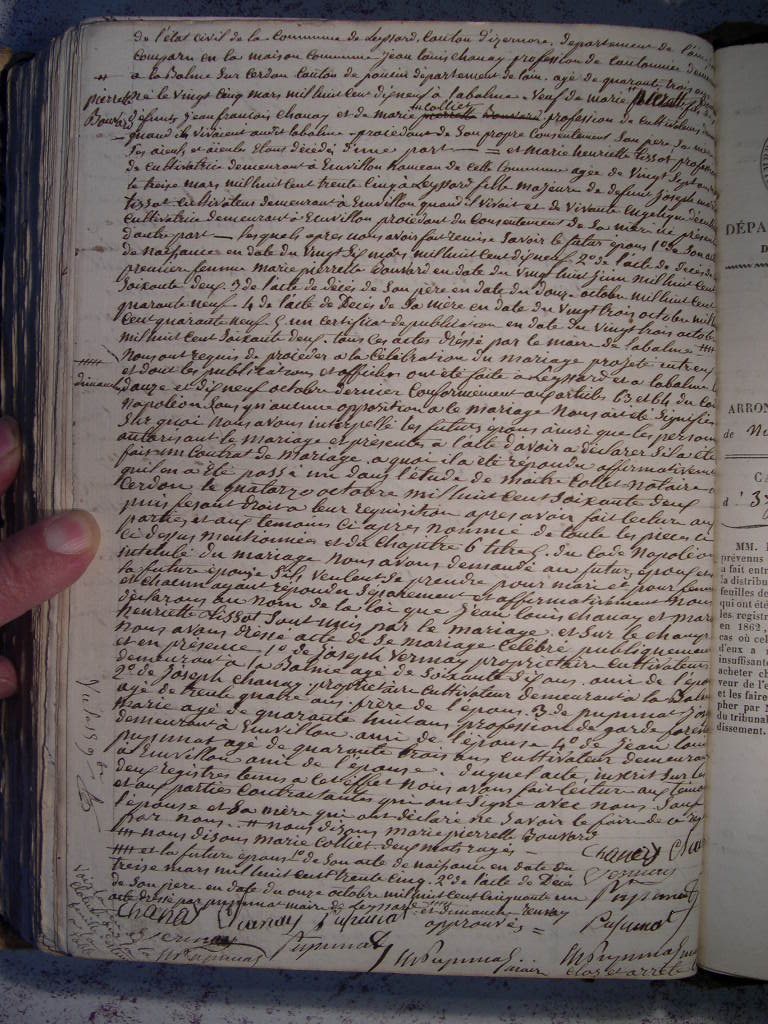 de l'état civil de la Commune de Leyssard, Canton d'izernore, département de l'ain
Comparu en la maison commune jean louis chanay profession de cantonnier demeu
a la balme sur cerdon Canton de poncin département de lain. agé de quarante trois ans
né le vingt cinq mars mil huit cent dix neuf a labalme. Veuf de marie
pierrette
Bouvard
defunts jean francois chanay et de marie Colliet profession de cultivateurs
quand ils vivoient audit labalme - procédant de son propre consentement son père sa mère
ses aieuls et aieules étant décédés d'une part — et marie henriette tissot profession
de cultivatrice demeurant à Emvillon hameau de cette commune agée de vingt sept ans
le treize mars mil huit cent trente cinq a Leyssard fille majeure de defunt joseph marie
tissot cultivateur demeurant à Emvillon quand il vivoit et de vivante angelique
cultivatrice demeurant à Emvillon procédant du consentement de sa mère ici présente
d'autre part — lesquels apres nous avoir fait remise savoir le futur epous 1o de son acte
de naissance en date du vingt six mars mil huit cent dix neuf. 2o de l'acte de décès de
premiere femme marie pierrette bouvard en date du vingt huit juin mil huit cent
soixante deux. 3 de l'acte de décès de son père en date du douze octobre mil huit cent
quarante neuf 4 de l'acte de Decès de sa mère en date du vingt trois octobre mil huit
cent quarante neuf 5 un certificat de publication en date du vingt trois octobre
mil huit cent soixante deux. tous ces actes dressé par le maire de labalme
Nous ont requis de procéder a la Célébration du mariage projeté entre eux
et dont les publications et affiches ont été faite à Leyssard et a labalme
dimanche
douze et dix neuf octobre dernier conformément aux articles 63 et 64 du code
Napoléon. Sans qu'aucune opposition a le mariage nous ait été signifiée
Sur quoi nous avons interpellé les futurs epous ainsi que les personnes
autorisant le mariage et présentes a l'acte d'avoir a déclarer s'il a été
fait un contrat de mariage. a quoi il a été répondu affirmativement
qu'il en a été passé un dans l'étude de maitre Collet notaire a
Cerdon le quatorze octobre mil huit cent soixante deux
puis fesant droit a leur requisition apres avoir fait lecture aux
parties et aux temoins ci apres nommé de toute les pieces
ci dessus mentionnées et du chapitre 6 titre 5. du Code Napoléon
intitulé du mariage nous avons demandé au futur epoux et
la future épouse s'ils veulent se prendre pour mari et pour femme
et chacun ayant répondu séparement et affirmativement nous
déclarons au nom de la loi que jean louis chanay et marie
henriette Tissot sont unis par le mariage. et sur le champ
nous avons dressé acte de se mariage célébré publiquement
et en présence 1o de joseph vernay proprietaire cultivateur
demeurant a la Balme agé de soixante six ans. ami de l'épous
2o de joseph Chanay proprietaire cultivateur demeurant a la Balme
agé de trente quatre ans frere de l'epous. 3 de pupunat joseph
marie agé de quarante huit ans profession de garde forestier
demeurant à Emvillon ami de l'épouse 4o de jean louis
pupunat agé de quarante trois ans cultivateur demeurant
à Emvillon ami de l'épouse. duquel acte, inscrit sur les
deux registres tenus a cet effet nous avons fait lecture aux temoins
et aux parties contractantes qui ont signé avec nous. sauf
l'épouse et sa mère qui ont déclaré ne savoir le faire de ce requis
par nous. nous disons marie pierrette Bouvard
nous disons marie Colliet. deux mots rayés
et la future epous 1o de son acte de naissance en date du
treize mars mil huit cent trente cinq. 2o de l'acte de Decès
de son père en date du onze octobre mil huit cent cinquante un
acte dressé par pupunat maire de Leyssard et dimanche
approuvés =
Chanay Chanay Pupunat
Vernay Pupunat
Pupunat
maire
clos et arrêté
DÉPA
ARRON
de
MM.
prévenus
a fait entr
la distribu
feuilles de
qui ont été
les registr
en 1862,
cas où cel
d'eux a
insuffisante
acheter ch
veur de l'e
et les faire
pher par M
du tribunal
dissement.